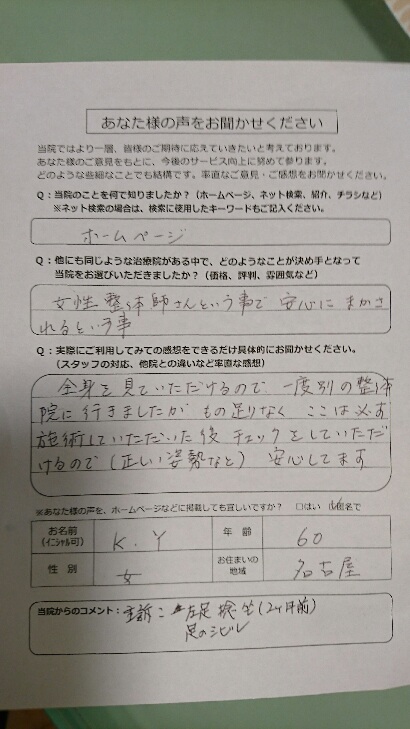 あなた様の声をお聞かせください
当院ではより一層、皆様のご期待に応えていきたいと考えております。
あなた様のご意見をもとに、今後のサービス向上に努めて参ります。
どのような些細なことでも結構です。率直なご意見・ご感想をお聞かせください。
Q：当院のことを何で知りましたか？（ホームページ、ネット検索、紹介、チラシなど）
※ネット検索の場合は、検索に使用したキーワードもご記入ください。
ホームページ
Q：他にも同じような治療院がある中で、どのようなことが決め手となって
当院をお選びいただきましたか？（価格、評判、雰囲気など）
女性整体師さんという事で 安心に まかさ
れるという事
Q：実際にご利用してみての感想をできるだけ具体的にお聞かせください。
（スタッフの対応、他院との違いなど率直な感想）
全身を見ていただけるので 一度別の整体
院に行きましたが もの足りなく ここは必ず
施術していただいた後 チェックをしていただ
けるので（正しい姿勢など） 安心してます
※あなた様の声を、ホームページなどに掲載しても宜しいですか？ □はい 匿名で
お名前 K.Y 年 齢 60
（イニシャル可）
性 別 女 お住まいの 名古屋
地域
当院からのコメント：主訴： 左足 捻挫（2ヶ月前）
足のシビレ